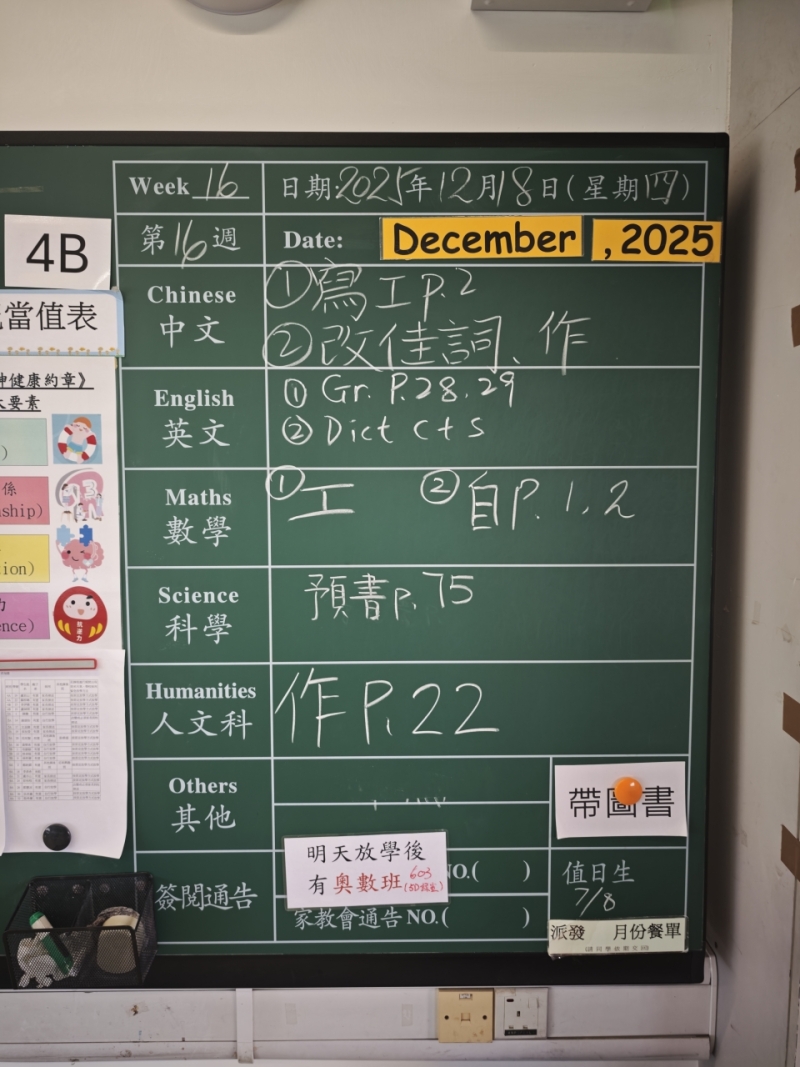 Week 16
日期:2025年12月18日(星期四)
第16週
Date:
December
, 2025
4B
當值表
神健康約章》
要素
係
nship)
tion)
力
ence)
Chinese
中文
①寫工p.2
②改佳詞、作
English
英文
① Gr. P.28.29
② Dict C+S
Maths
數學
①工 ②自P.1,2
Science
科學
預書p.75
Humanities
人文科
作P.22
Others
其他
帶圖書
簽閱通告
明天放學後
有奧數班 603
NO.( )
家教會通告NO.( )
值日生
7/8
派發 月份餐單